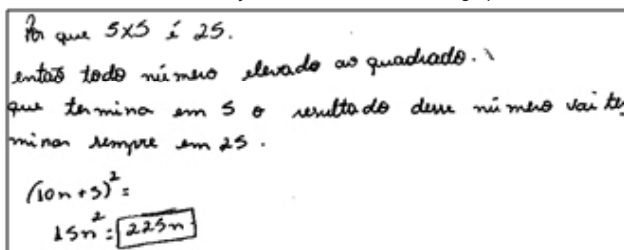 Por que 5x5 é 25.
então todo número elevado ao quadrado.
que termina em 5 o resultado desse número vai ter
minar sempre em 25.
(10n+5)²=
15n²= 225n